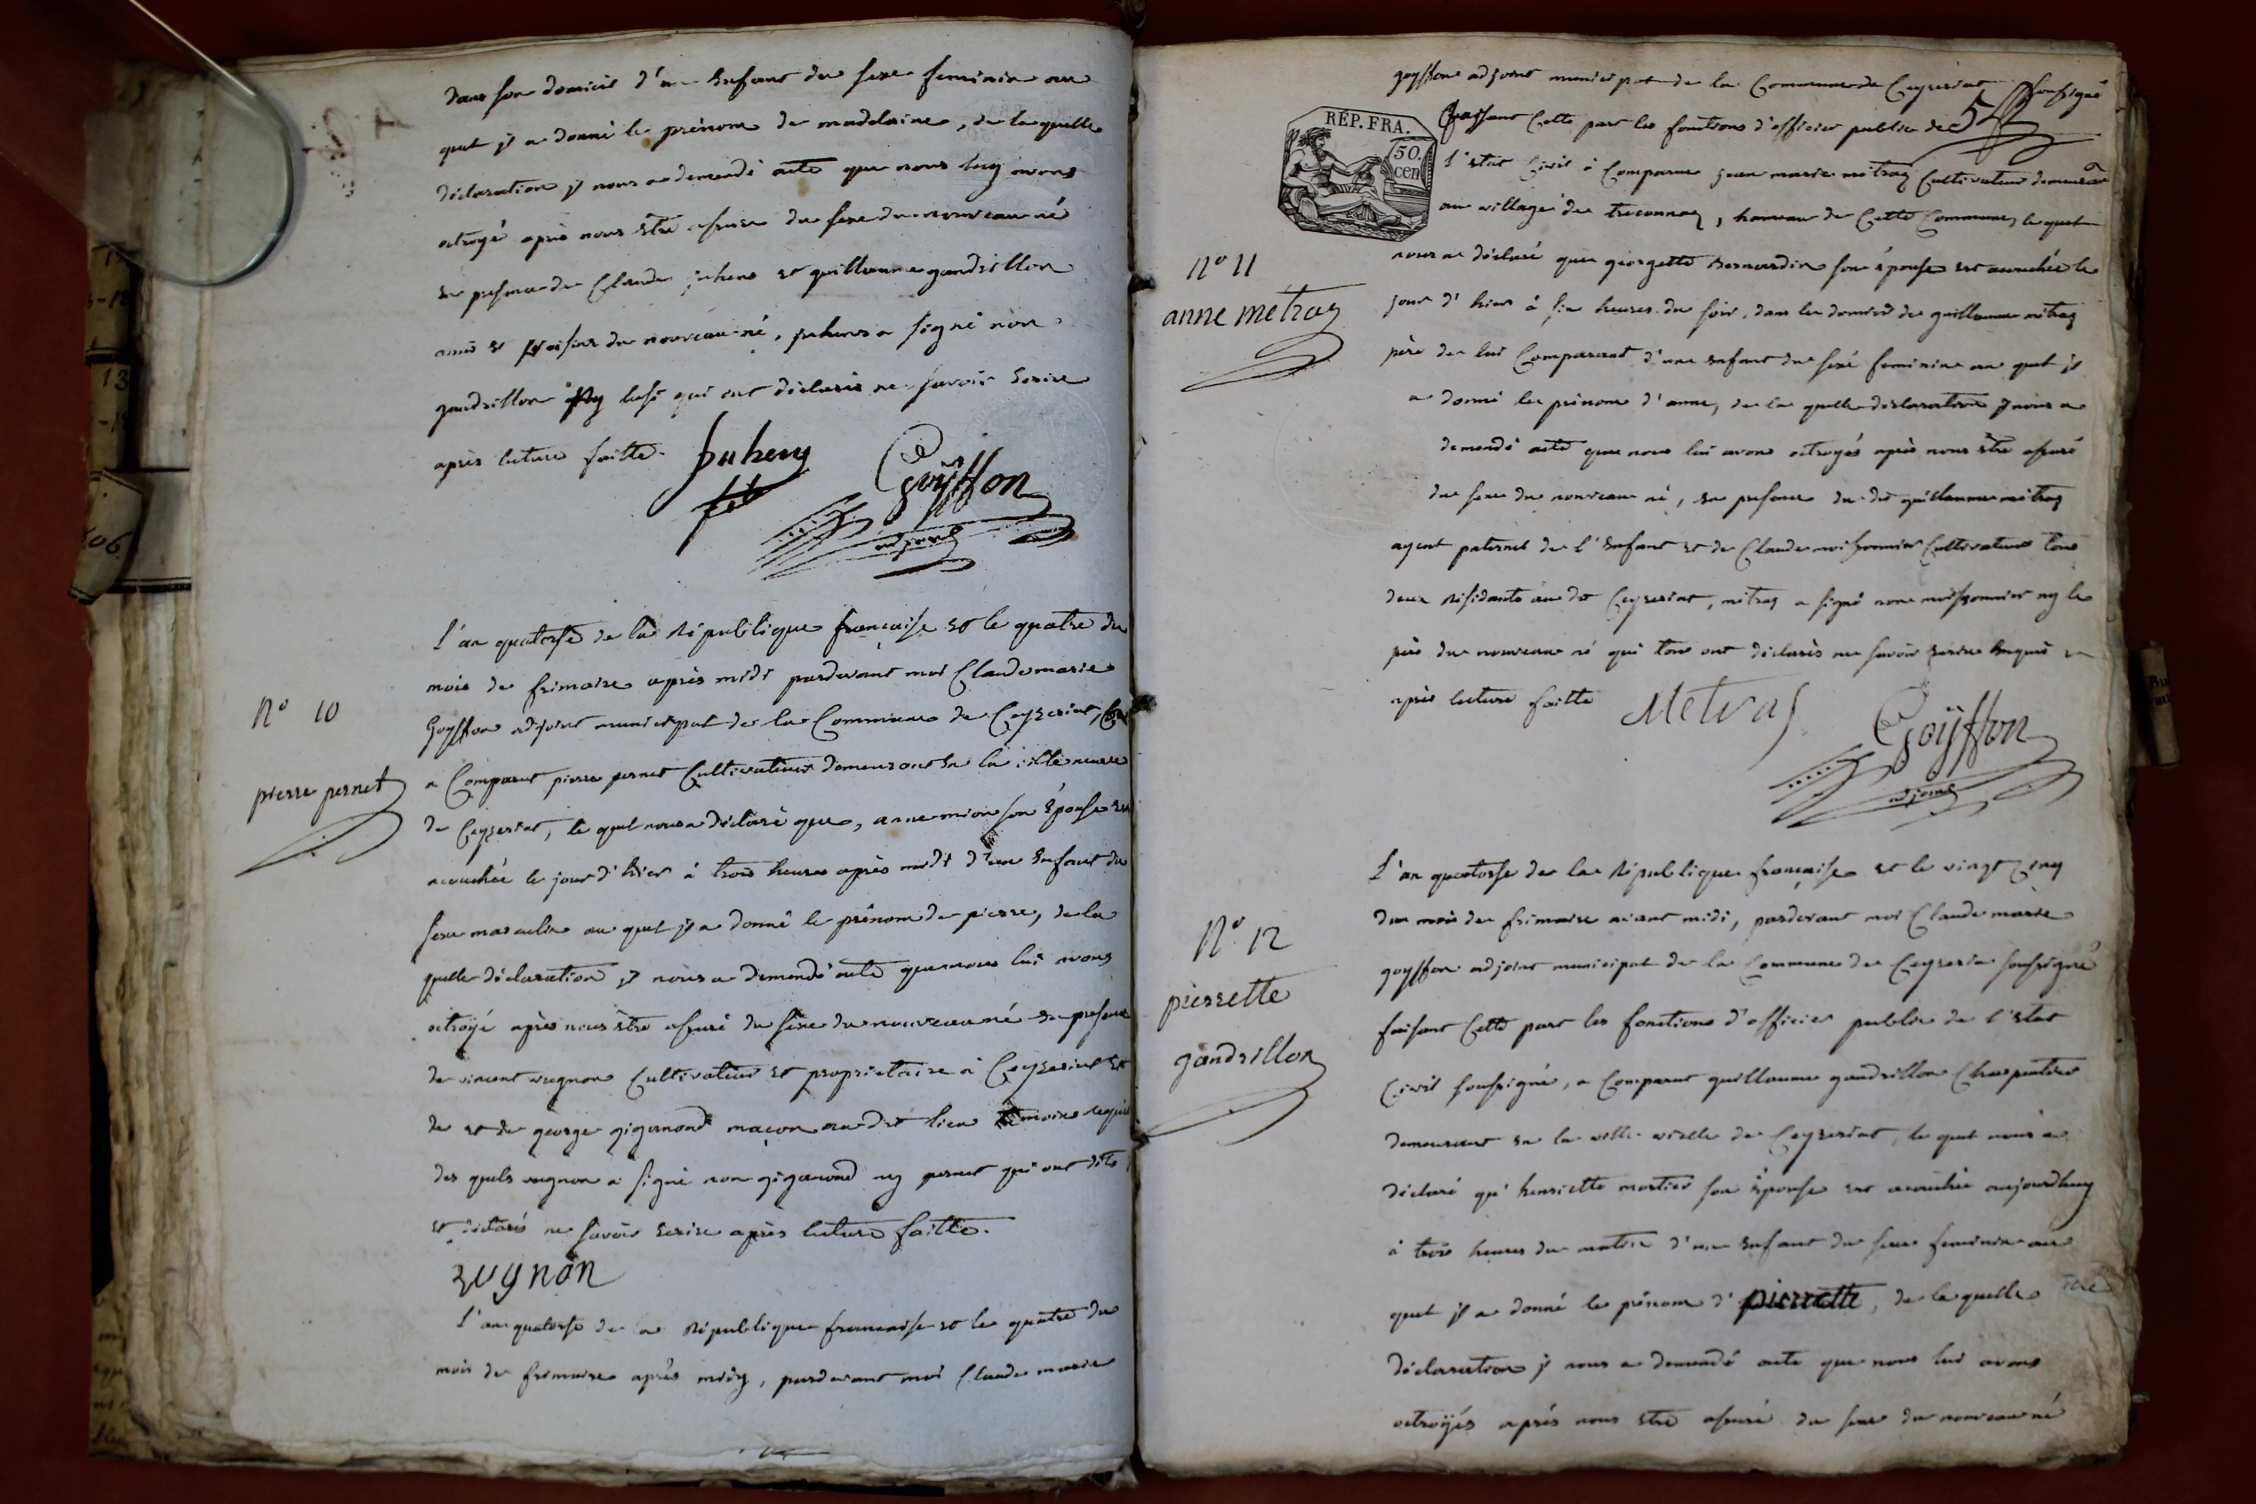 dans son domicil d'un Enfant du sexe feminin au
quel il a donné le prénom de madelaine, de la quelle
déclaration il nous a demandé acte que nous luy avons
octroyé après nous être assuré du sexe du nouveau né
en presence de Claude juhens et guillaume gandrillon
amis et voisins du nouveau né, juhens a signé non
gandrillon ny qui ont déclarés ne savoir Ecrire
après lecture faitte.
Goÿffon
adjoint
L'an quatorse de la République française et le quatre du
mois de frimaire après midi pardevant moi Claude marie
Goyffon adjoint municipal de la Commune de Ceyzeriat,
N° 10
pierre pernet
a Comparut pierre pernet Cultivateur demeurant En la ville neuve
de Ceyzeriat, le quel nous a déclaré que, anne mion son Épouse est
acouchée le jour d'hier à trois heures après midi d'un Enfant du
sexe masculin au quel il a donné le prénom de pierre, de la
quelle déclaration il nous a demandé acte que nous lui avons
octroÿé après nous être assuré du sexe du nouveau né En presence
de vincent vugnon Cultivateur et proprietaire à Ceyzeriat et
de et de george gigarnond maçon au dit lieu témoins requis
des quels vugnon a signé non gigarnond ny pernet qui ont dits
et déclarés ne savoir Ecrire après lecture faitte.
vugnon
L'an quatorse de la République francaise et le quatre du
mois de frimaire après midy, pardevant moi Claude marie
goyffon adjoint municipal de la Commune de Ceyzeriat soussigné
RÉP. FRA.
50.
cen
faissant Cette part les fonctions d'officier public de
l'état Civil à Comparu jean marie métraz Cultivateur demeurant
au village de treconnaz, hameau de Cette Commune, le quel
N° 11
anne métraz
nous a déclaré que georgette Bernardin son épouse est acouchée le
jour d'hier à six heures du soir, dans le domicil de guillaume métraz
père de lui Comparant d'une enfant du sexe feminin au quel il
a donné le prénom d'anne, de la quelle déclaration il nous a
demandé acte que nous lui avons octroyés après nous être assuré
du sexe du nouveau né, en presence du dit guillaume métraz
ayeul paternel de l'Enfant et de Claude moissonnier Cultivateurs tous
deux résidants au dit Ceyzeriat, métraz a signé non moissonnier ny le
père du nouveau né qui tous ont déclarés ne savoir Ecrire Enquis
après lecture faitte
Metras
Goÿffon
adjoint
L'an quatorse de la République française et le vingt Cinq
du mois de frimaire avant midi, pardevant moi Claude marie
N° 12
pierrette
gandrillon
goyffon adjoint municipal de la Commune de Ceyzeria soussigné
faisant Cette part les fonctions d'officier public de l'état
Civil soussigné, a Comparut guillaume gandrillon Charpentier
demeurant en la ville vielle de Ceyzeriat, le quel nous a
déclaré qu'henriette mortier son Épouse est acouchée aujourdhuy
à trois heures du matin d'un Enfant du sexe feminin au
quel il a donné le prénom d'pierrette, de la quelle
déclaration il nous a demandé acte que nous lui avons
octroÿés après nous être assuré du sexe du nouveau né